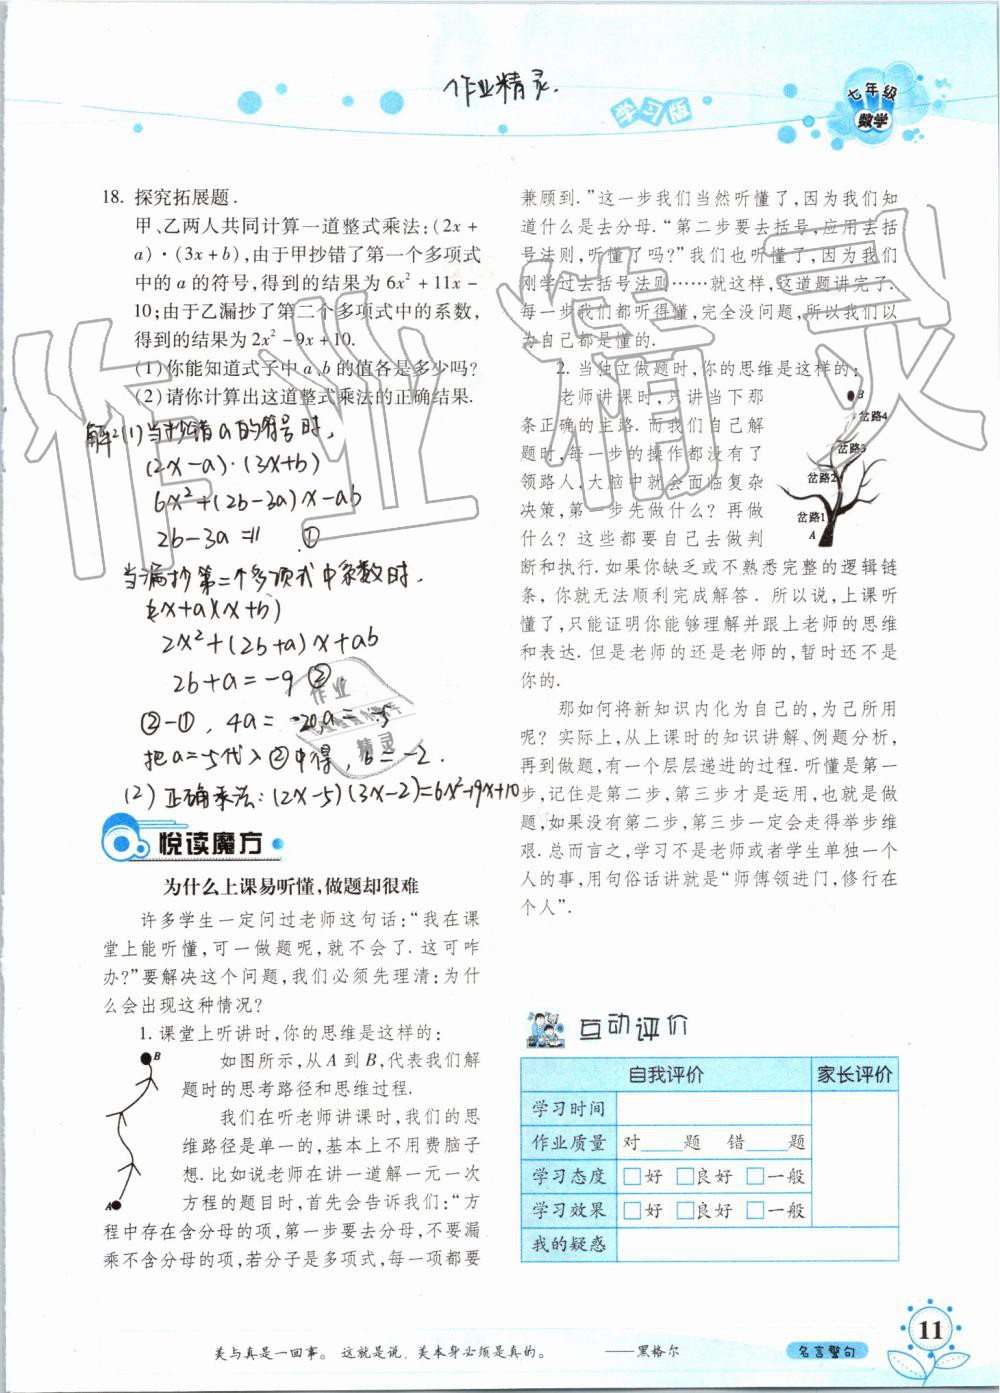 作业精灵.
学习版
七年级
数学
18. 探究拓展题.
甲、乙两人共同计算一道整式乘法:(2x+
a)·(3x+b),由于甲抄错了第一个多项式
中的 a 的符号,得到的结果为 6x²+11x-
10;由于乙漏抄了第二个多项式中的系数,
得到的结果为 2x²-9x+10.
(1)你能知道式子中 a、b 的值各是多少吗?
(2)请你计算出这道整式乘法的正确结果.
解:(1)当抄错a的符号时,
(2x-a)·(3x+b)
6x²+(2b-3a)x-ab
2b-3a=11 ①
当漏抄第二个多项式中系数时.
(2x+a)(x+b)
2x²+(2b+a)x+ab
2b+a=-9 ②
②-①, 4a=-20 a=-5
把a=-5代入②中得, b=-2.
(2)正确乘法:(2x-5)(3x-2)=6x²-19x+10
悦读魔方
为什么上课易听懂,做题却很难
许多学生一定问过老师这句话:“我在课
堂上能听懂,可一做题呢,就不会了.这可咋
办?”要解决这个问题,我们必须先理清:为什
么会出现这种情况?
1. 课堂上听讲时,你的思维是这样的:
B
A
如图所示,从 A 到 B,代表我们解
题时的思考路径和思维过程.
我们在听老师讲课时,我们的思
维路径是单一的,基本上不用费脑子
想. 比如说老师在讲一道解一元一次
方程的题目时,首先会告诉我们:“方
程中存在含分母的项,第一步要去分母,不要漏
乘不含分母的项,若分子是多项式,每一项都要
兼顾到.”这一步我们当然听懂了,因为我们知
道什么是去分母.“第二步要去括号,应用去括
号法则,听懂了吗?”我们也听懂了,因为我们
刚学过去括号法则……就这样,这道题讲完了.
每一步我们都听得懂,完全没问题,所以我们以
为自己都是懂的.
2. 当独立做题时,你的思维是这样的:
老师讲课时,只讲当下那
条正确的主路. 而我们自己解
题时,每一步的操作都没有了
领路人,大脑中就会面临复杂
决策,第一步先做什么? 再做
什么? 这些都要自己去做判
B
岔路4
岔路3
岔路2
岔路1
A
断和执行. 如果你缺乏或不熟悉完整的逻辑链
条, 你就无法顺利完成解答. 所以说,上课听
懂了,只能证明你能够理解并跟上老师的思维
和表达. 但是老师的还是老师的,暂时还不是
你的.
那如何将新知识内化为自己的,为己所用
呢? 实际上,从上课时的知识讲解、例题分析,
再到做题,有一个层层递进的过程. 听懂是第一
步,记住是第二步,第三步才是运用,也就是做
题,如果没有第二步,第三步一定会走得举步维
艰. 总而言之,学习不是老师或者学生单独一个
人的事,用句俗话讲就是“师傅领进门,修行在
个人”.
互动评价
自我评价 家长评价
学习时间
作业质量 对____题 错____题
学习态度 □好 □良好 □一般
学习效果 □好 □良好 □一般
我的疑惑
美与真是一回事。这就是说,美本身必须是真的。 ——黑格尔
名言警句
11
作业精灵
作业
精灵